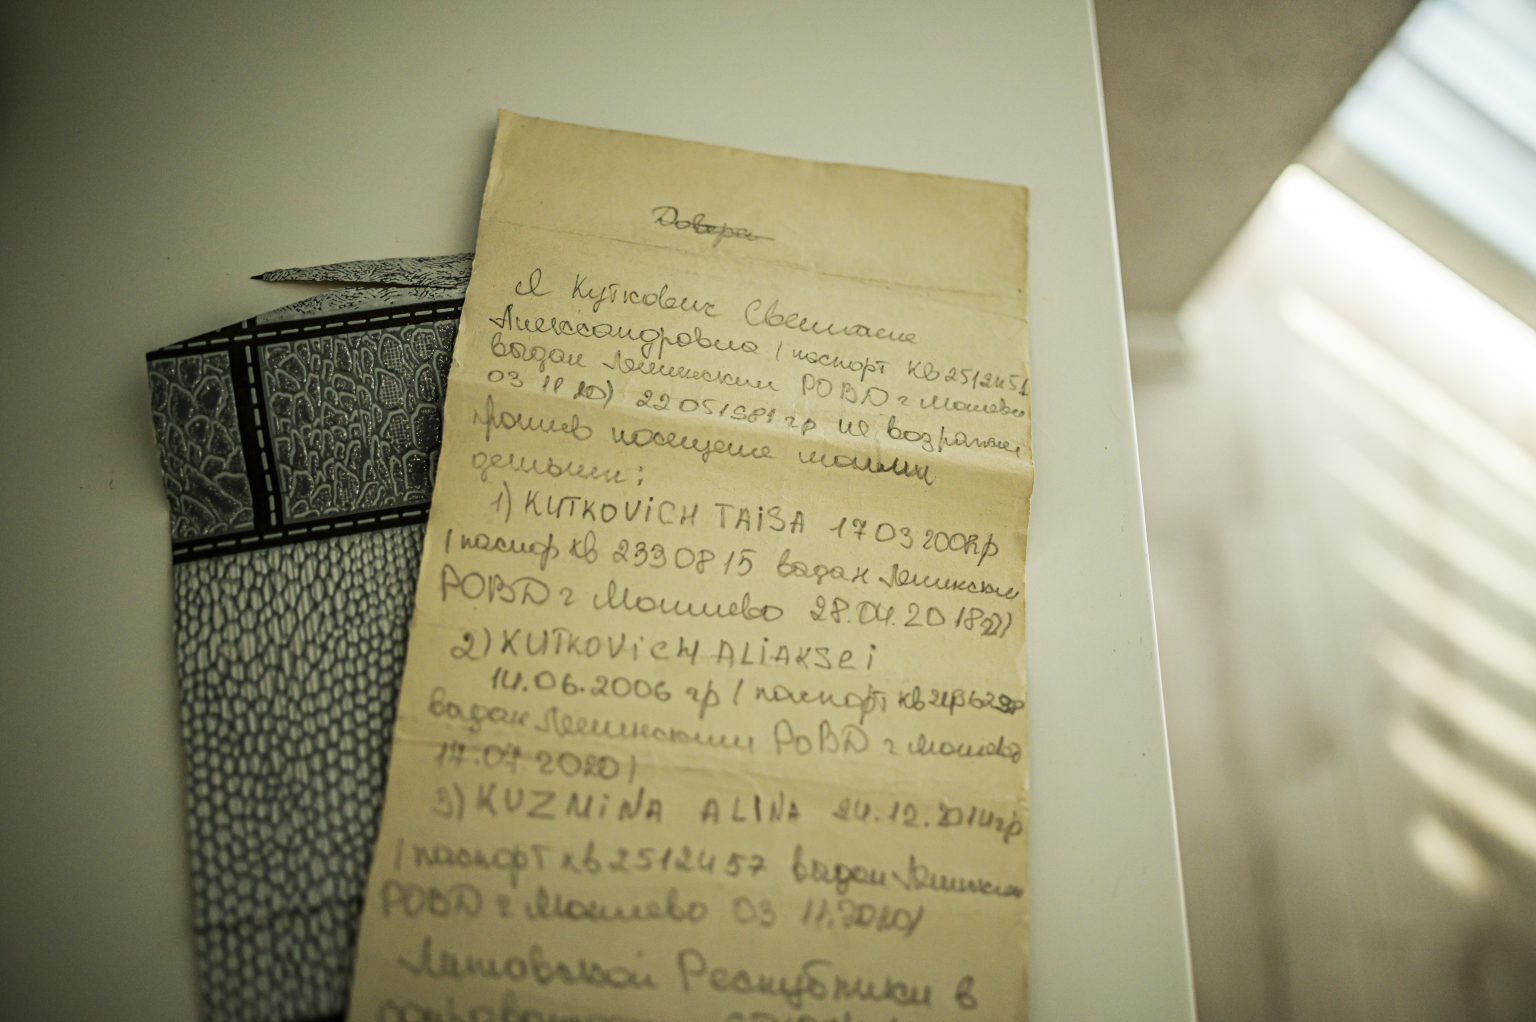 Довере
Я Куткович Светлана
Александровна (паспорт КВ 2512451
выдан Ленинским РОВД г Могилева
03 11 20) 22 05 1981 гр не возражаю
против посещение моими
детьми:
1) KUTKOVICH TAISA 17 03 2002гр
(паспор КВ 2330815 выдан Ленинским
РОВД г Могилево 28.04.2018г)
2) KUTKOVICH ALIAKSEI
14.06.2006 гр (паспорт КВ
выдан Ленинским РОВД г Могилева
17.07 2020)
3) KUZMINA ALINA 24.12.2014гр
(паспорт КВ 2512457 выдан Ленинским
РОВД г Могилево 03 11.2020)
Литовской Республики в